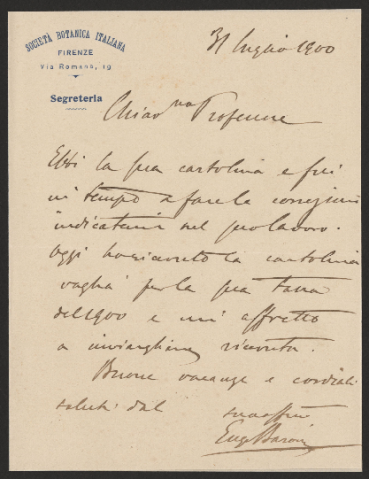 SOCIETÀ BOTANICA ITALIANA
FIRENZE
Via Romana, 19
Segreteria
31 luglio 1900
Chiar.mo Professore
Ebbi la sua cartolina e fui
in tempo a fare le correzioni
indicatemi nel suo lavoro.
Oggi ho ricevuto la cartolina
vaglia per la sua tassa
del 1900 e mi affretto
a inviargliene ricevuta.
Buone vacanze e cordiali
saluti dal suo aff.mo
Eug. Baroni